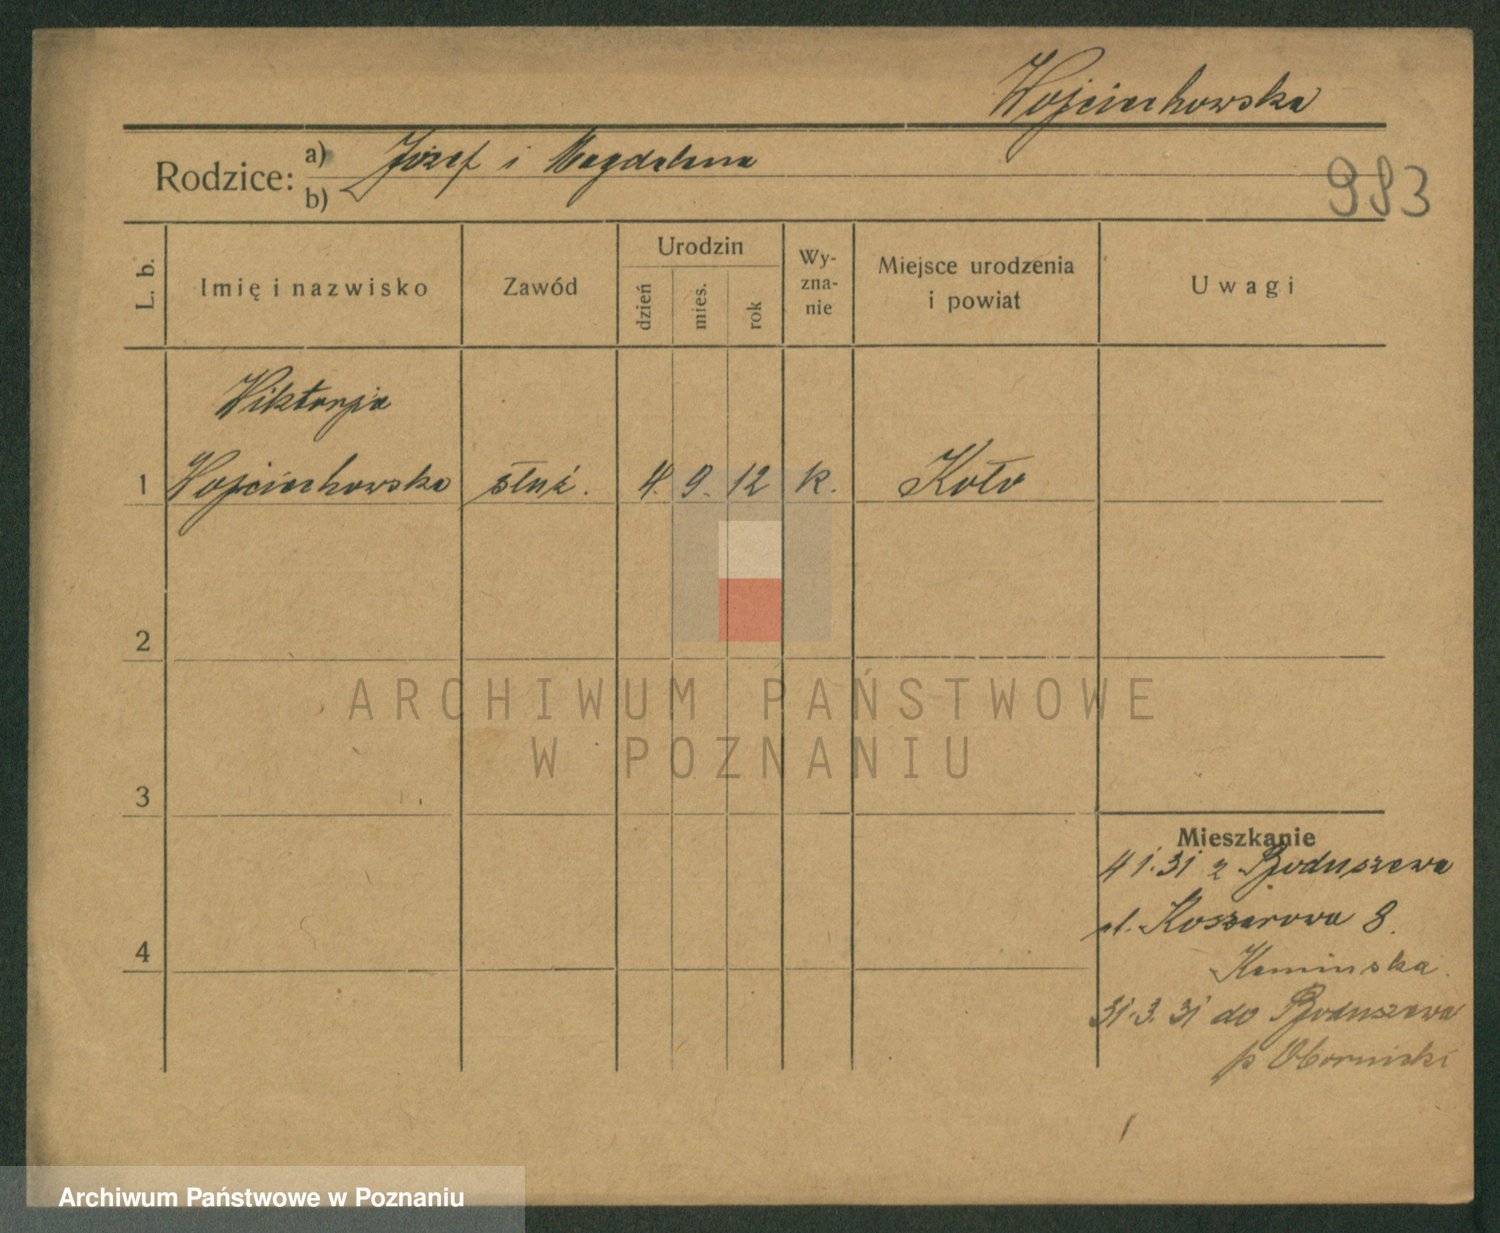 Wojciechowska
Rodzice: a) Józef i Magdalena
b)
983
L. b.
Imię i nazwisko
Zawód
Urodzin
dzień
mies.
rok
Wy-
zna-
nie
Miejsce urodzenia
i powiat
Uwagi
Wiktorja
1 Wojciechowska służ. 4. 9. 12 k. Koło
2
3
4
Mieszkanie
4 1. 31 z Boduszewa
ul. Koszarowa 8.
Kaminska.
31. 3. 31 do Boduszewa
p Obornicki
ARCHIWUM PAŃSTWOWE
W POZNANIU
Archiwum Państwowe w Poznaniu